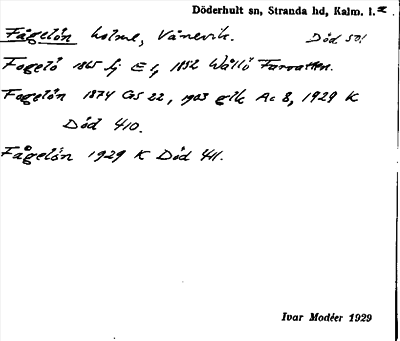 Döderhult sn, Stranda hd, Kalm. l.
Fågelön holme, Vånevik. Död 50!
Fogelö 1865 lj E 1, 1852 Wållö Farvatten.
Fogelön 1874 GS 22, 1903 glk Ac 8, 1929 K
Död 410.
Fågelön 1929 K Död 411.
Ivar Modéer 1929